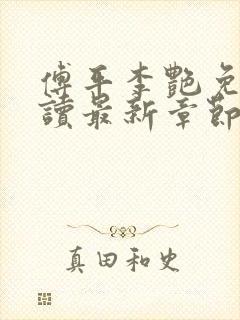 傅平李艷免
讀最新章節
真田和史